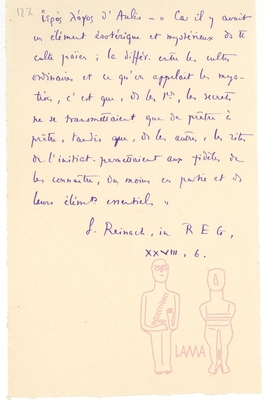 122
ἱερὸς λόγος d'Aulis — « Car il y avait
un élément ésotérique et mystérieux ds tt
culte païen ; la différ. entre les cultes
ordinaires et ce qu'on appelait les mys-
tères, c'est que, ds les 1ers, les secrets
ne se transmettaient que de prêtre à
prêtre, tandis que, ds les autres, les rites
de l'initiat. permettaient aux fidèles de
les connaître, du moins en partie et ds
leurs éléments essentiels »
S. Reinach, in R E G,
XXVIII, 6.
LAMA